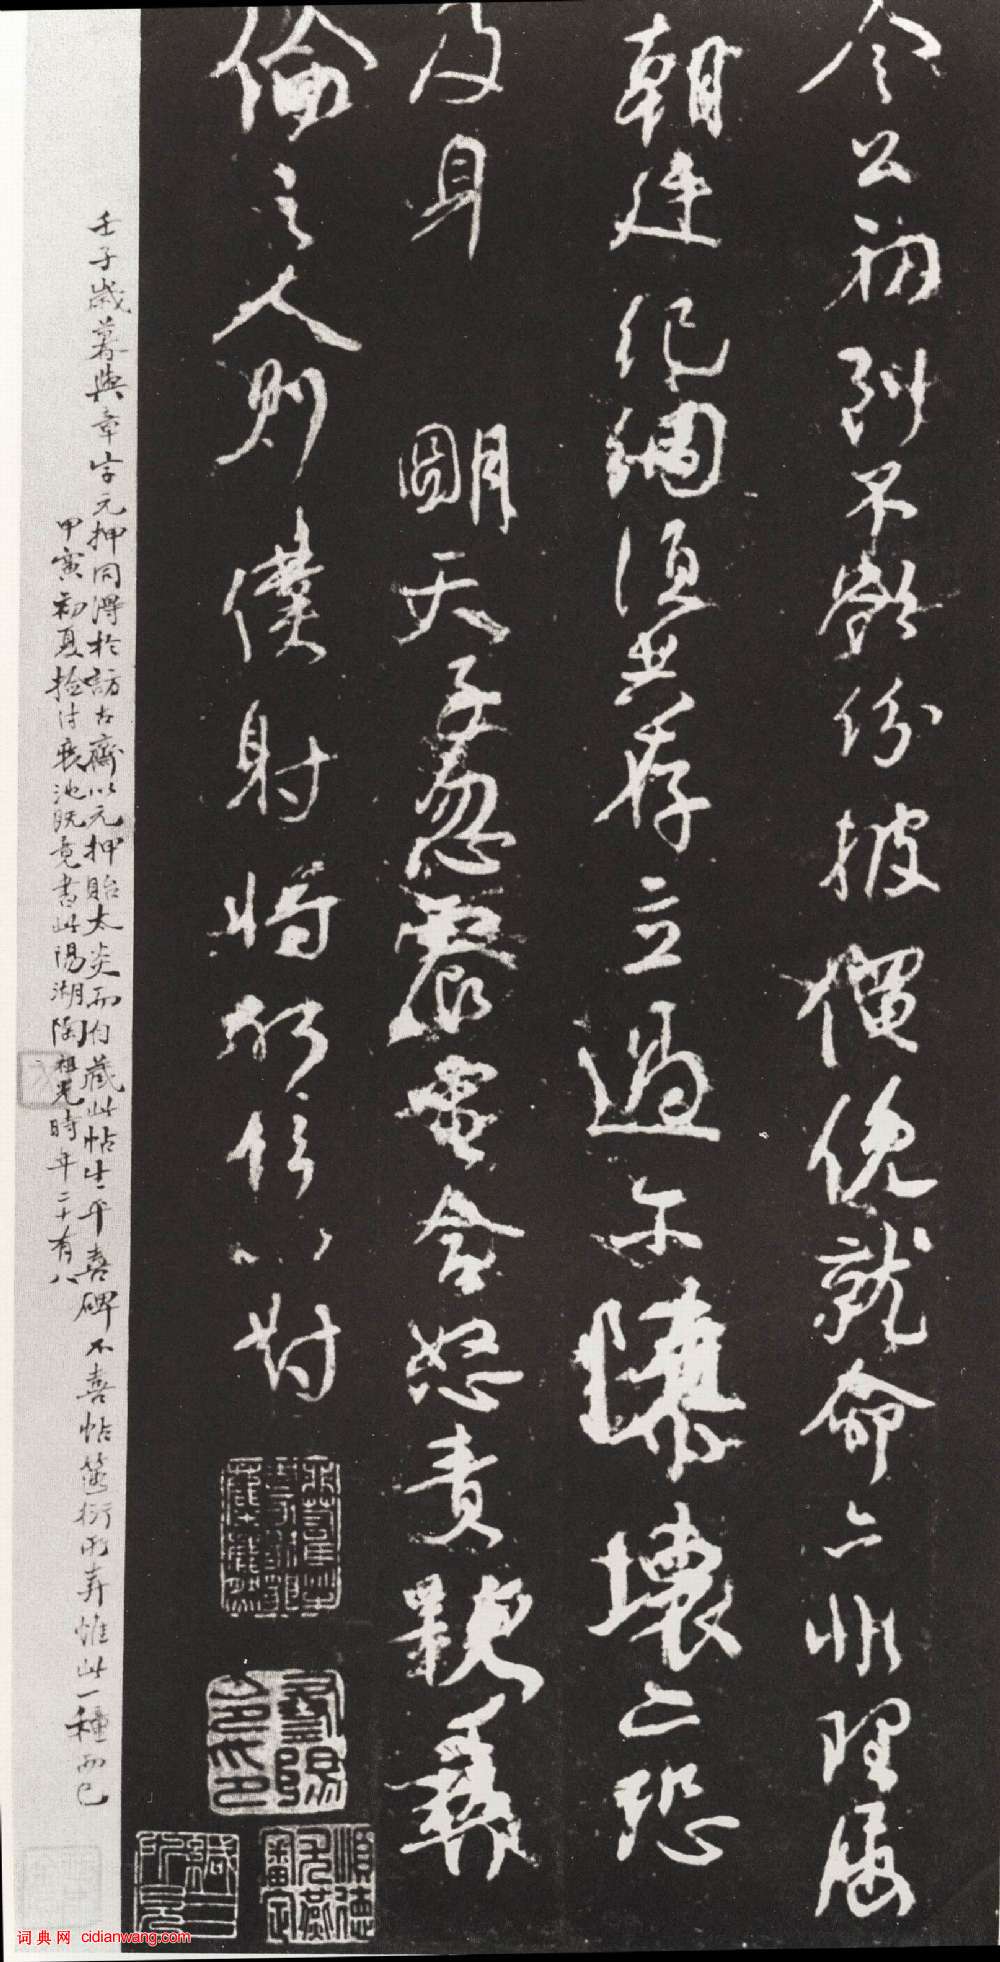 令公初到不欲紛披僶俛就命亦非理屈
朝廷紀綱須共存立過尒隳壞亦恐
及身 明天子忽震電含怒責斁彝
倫之人則僕射將何辭以對
壬子歲暮與章字元押同得於訪古齋以元押貽太炎而自藏此帖生平喜碑不喜帖篋衍所弆惟此一種而已
甲寅初夏檢付裝池既竟書此陽湖陶祖光時年二十有八
順德
詞典網 cidianwang.com